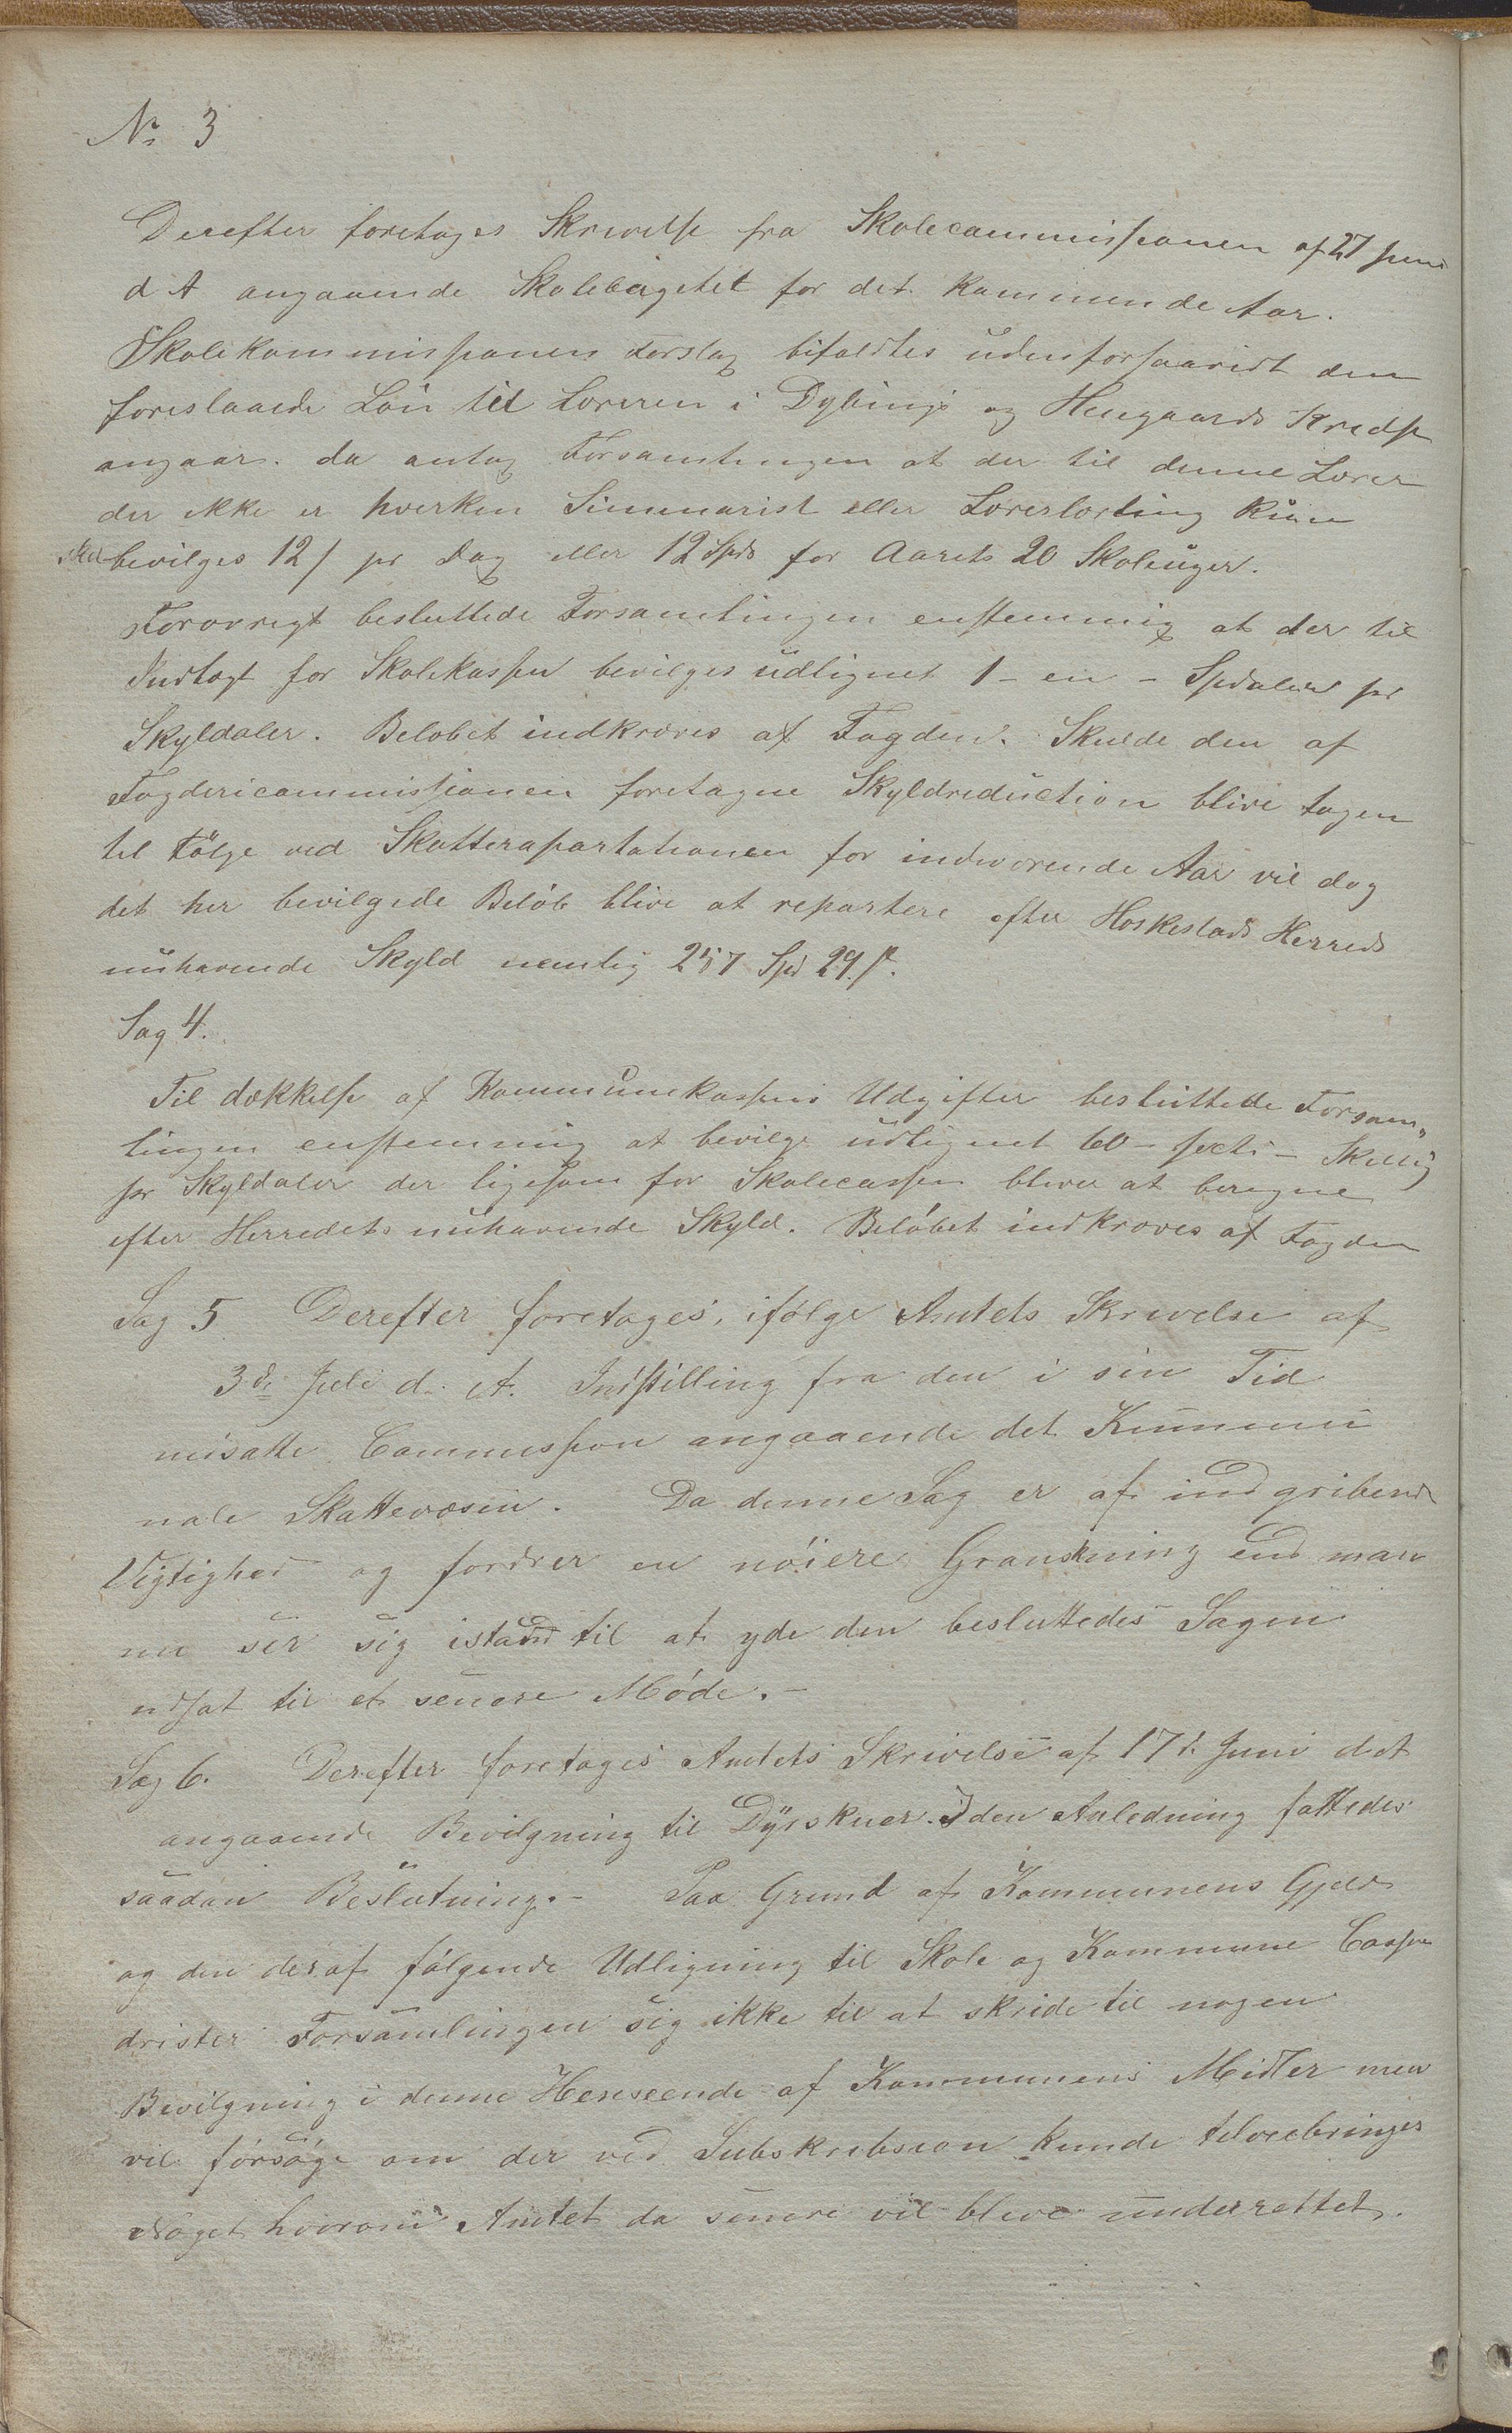 No 3
Derefter foretoges Skrivelse fra Skolecommissionen af 27 Juni
d A angaaende Skolebügetet for det kommende Aar.
Skolekommissionens Forslag bifaldtes üdenforsaavidt den
foreslaaede Lön til Læreren i Dybings og Hengaards Kredse
angaar. da antog Forsamlingen at der til denne Lærer
der ikke er hverken Siminarist eller Lærerlærling kün
skal bevilges 12 / pr Dag eller 12 Spds for Aarets 20 Skoleüger.
Forøvrigt besluttede Forsamlingen enstemmig at der til
Indtægt for Skolekassen bevilges üdlignet 1 - en - Spdaler pr
Skyldaler. Beløbet indkræves af Fogden. Skulde den af
Fogdericommissionen foretagne Skyldredüction blive tagen
til Fölge ved Skatterepartationen for indeværende Aar vil dog
det her bevilgede Belöb blive at repartere efter Hoskestads Herreds
nühavende Skyld nemlig 257 Spd 29 ſ.
Sag 4.
Til dækkelse af Kommünekassens Udgifter beslüttede Forsam„
lingen enstemmig at bevilge üdlignet 60 - sexti - Skillig
pr Skyldaler der ligesom for Skolecassen bliver at beregne
efter Herredets nühavende Skyld. Belöbet indkræves af Fogden
Sag 5 Derefter foretoges, ifölge Amtets Skrivelse af
3de Juli d. A. Indstilling fra den i sin Tid
nisatte Commission angaaende det Kummu
nale Skattevæsen. Da denne Sag er af indgribende
Vigtighed og fordrer en nöiere Granskning end man
nu ser sig istand til at yde den besluttedes Sagen
udsat til et senere Möde. -
Sag 6. Derefter foretoges Amtets Skrivelse af 17d. Juni d A
angaaende Bevilgning til Dÿrskuer. I den Anledning fattedes
saadan Beslutning. - Paa Grund af Kommunens Gjeld
og den deraf fölgende Udligning til Skole og Kommune Cassen
drister Forsamlingen sig ikke til at skride til nogen
Bevilgning i denne Henseende af Kommunens Midler men
vil försöge om der ved Subskribsion kunde tilveiebringes
Noget hvorom Amtet da senere vil blive underrettet.